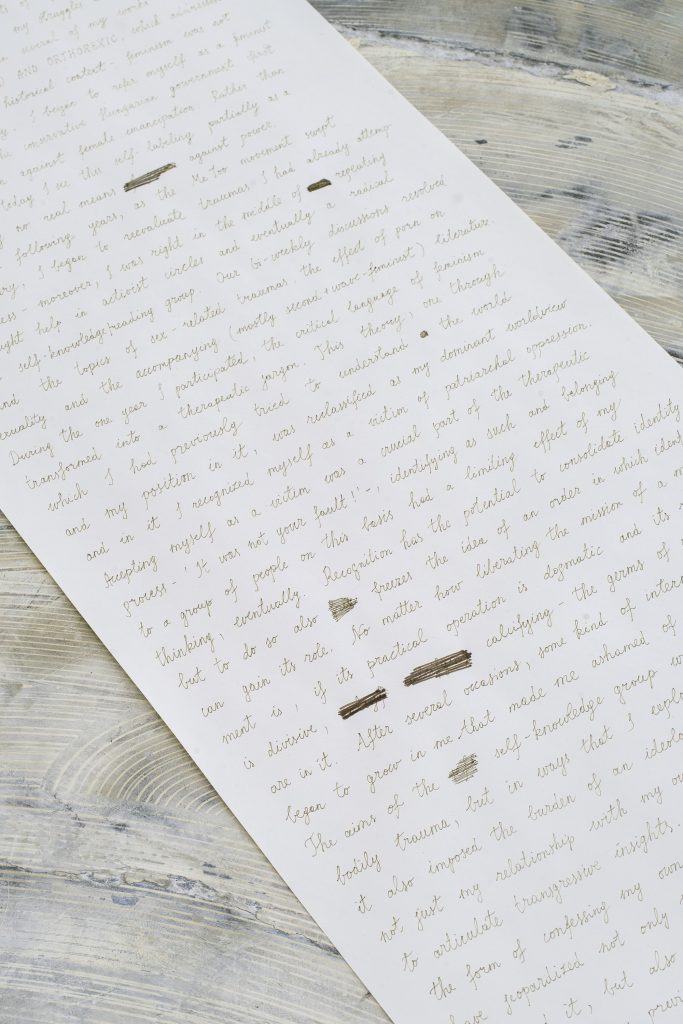 my struggles
in several of my works
AND ORTHOREXIC, which addresses
historical context - feminism was not
I began to refer myself as a feminist
the conservative Hungarian government first
against female emancipation. Rather than
today I see this self-labeling partially as a
no real means against power.
following years, as the MeToo movement swept
I began to reevaluate traumas I had already attemp
moreover, I was right in the middle of repeating
help in activist circles and eventually a radical
self-knowledge-reading group. Our bi-weekly discussions revolved
the topics of sex-related traumas, the effect of porn on
and the accompanying (mostly second-wave-feminist) literature.
During the one year I participated, the critical language of feminism
transformed into a therapeutic jargon. This theory, one through
which I had previously tried to understand the world
and my position in it, was reclassified as my dominant worldview
and in it I recognized myself as a victim of patriarchal oppression.
Acepting myself as a victim was a crucial part of the therapeutic
process - 'It was not your fault!' -, identifying as such and belonging
to a group of people on this basis had a limiting effect of my
thinking, eventually. Recognition has the potential to consolidate identity
but to do so also freezes the idea of an order in which ident
can gain its role. No matter how liberating the mission of a m
ment is, if its practical operation is dogmatic and its
is divisive, calcifying - the germs of
are in it. After several occasions, some kind of inter
began to grow in me that made me ashamed of
The aims of the self-knowledge group
bodily trauma, but in ways that I explo
it also imposed the burden of an ideolo
not just my relationship with my ow
to articulate transgressive insights.
the form of confessing my own
have jeopardized not only
it, but also
previ